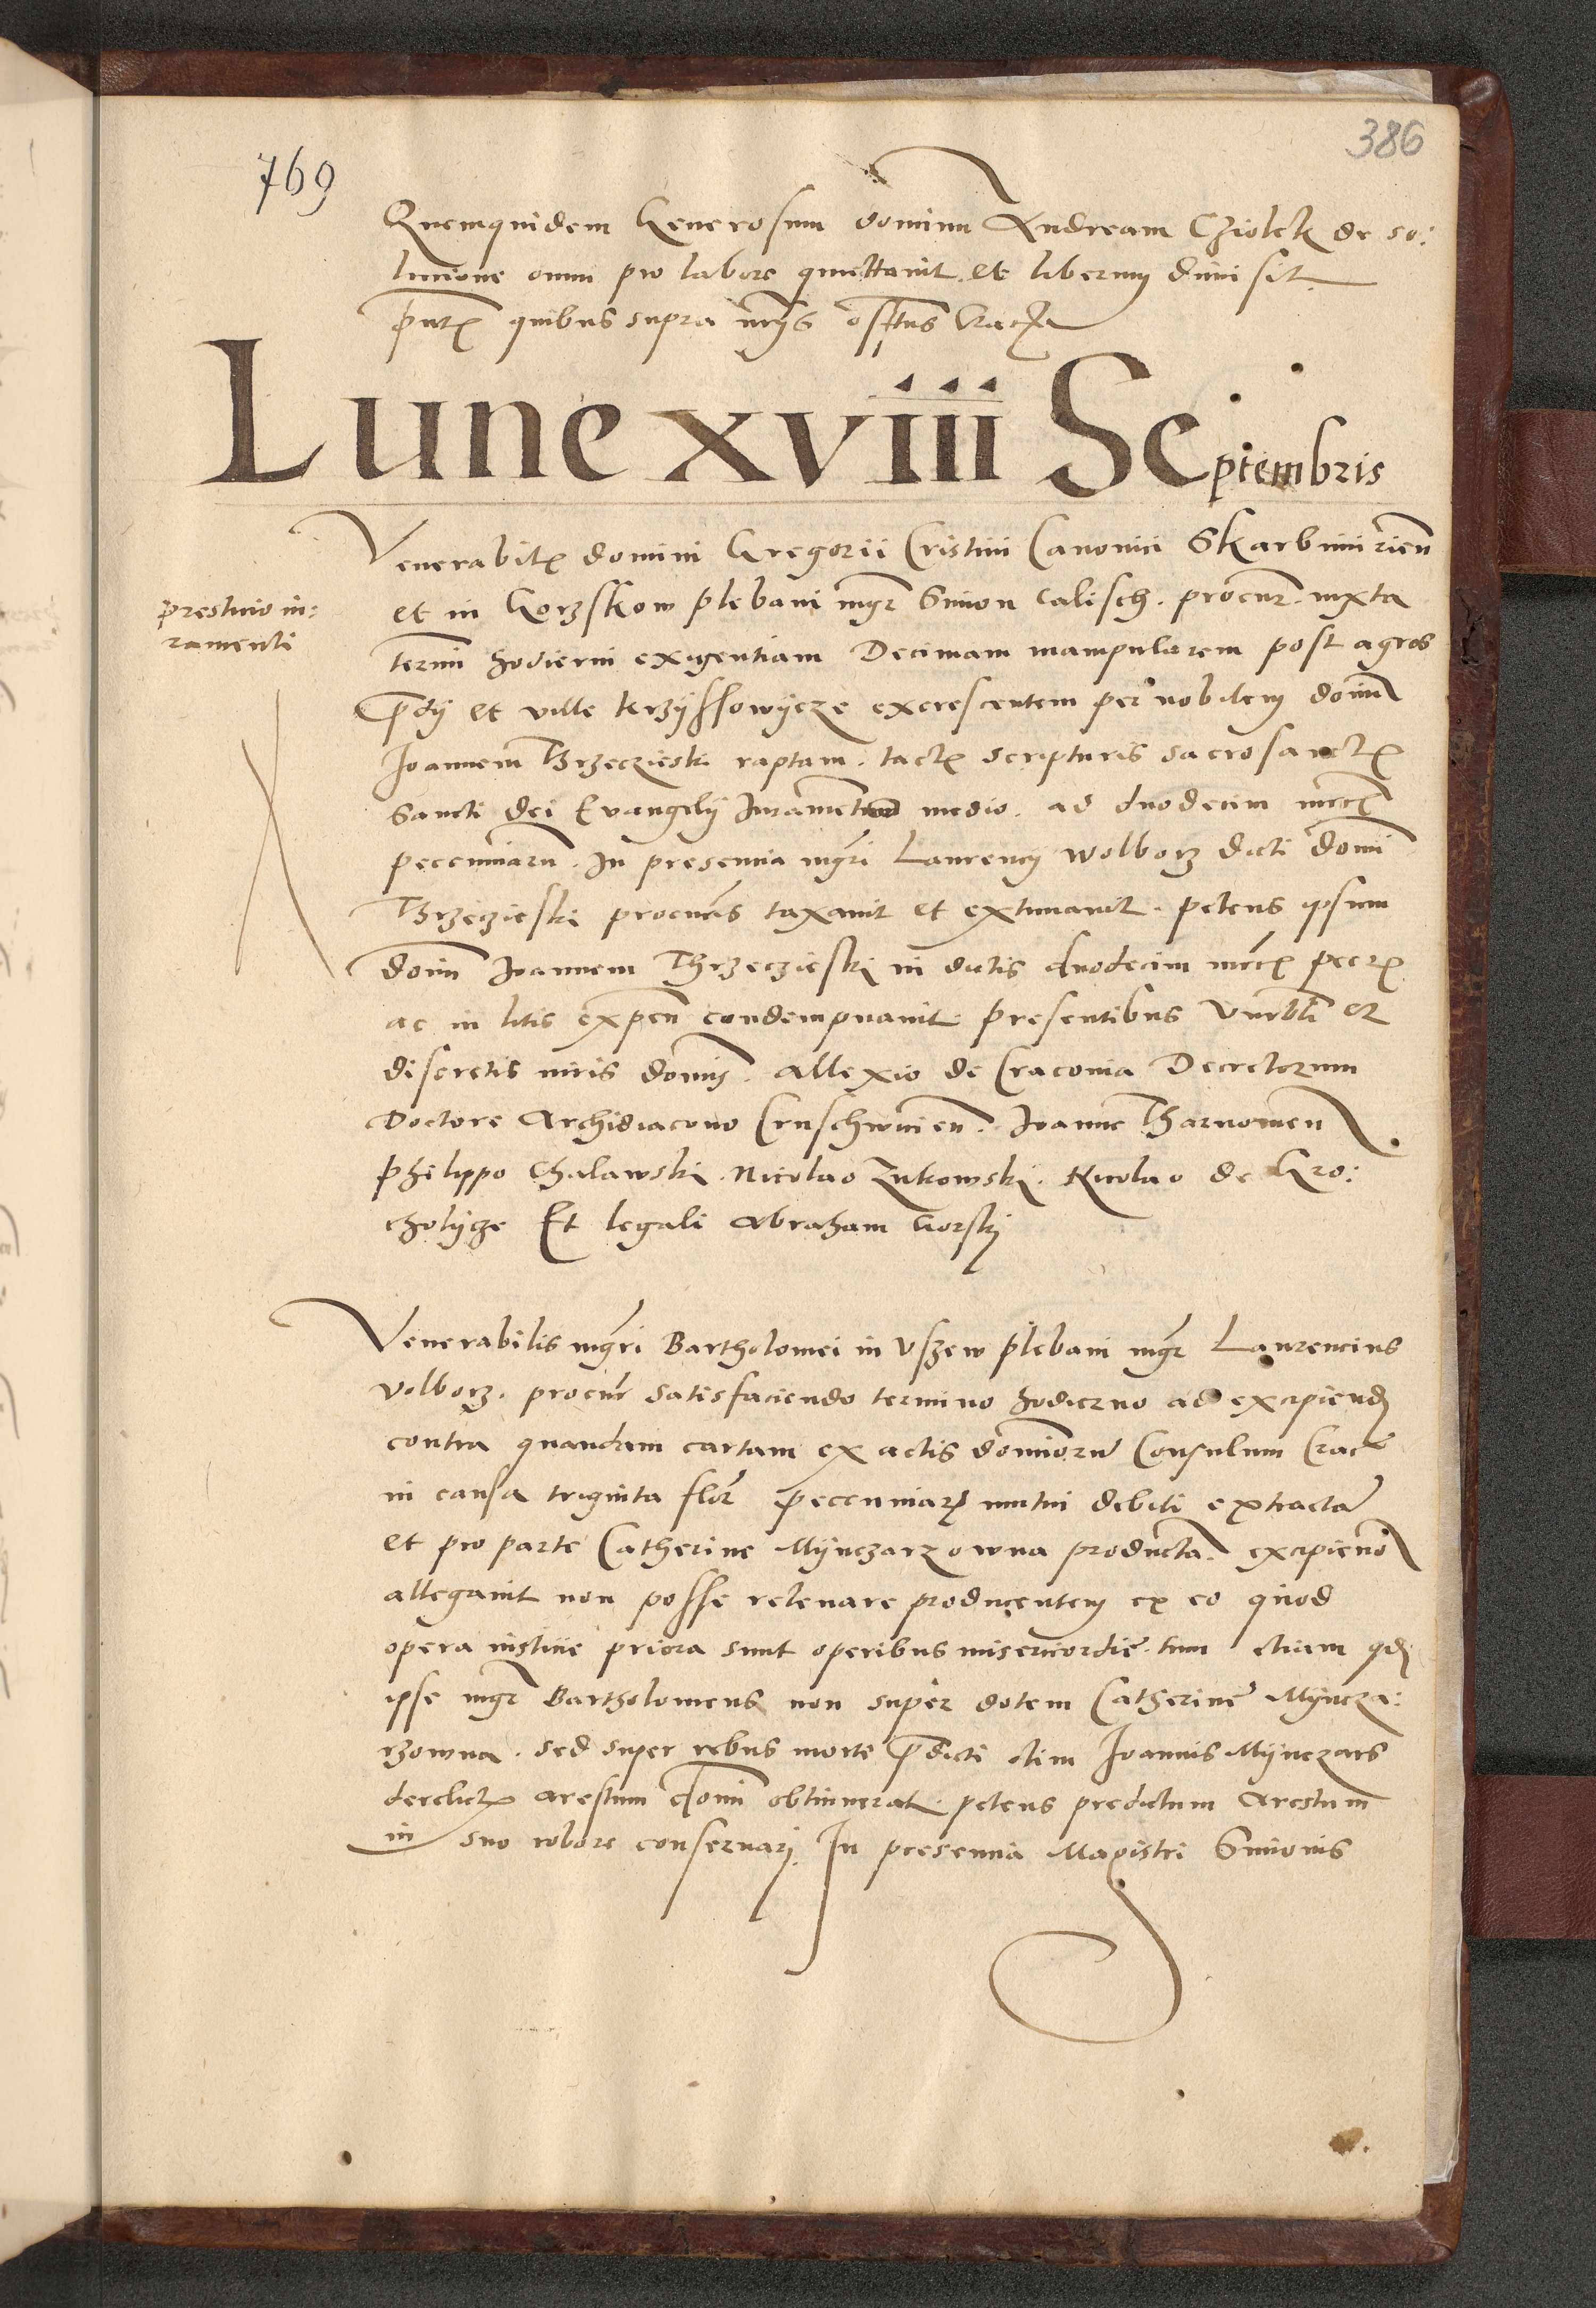 386
769
Quemquidem Generosum dominum Andream Cziolek de so:
lucione omni pro labore quittavit et liberum dimisit
pntꝫ quibus supra Cracꝫ
Lune xviii Septembris
Venerabilꝫ domini Gregorii Cristini Canonici Skarbimirien
prestacio iu:
ramenti
et in Gorzkow plebani mgr Simon Calisch. procur. iuxta
termi hodierni exigentiam Decimam manipularem post agros
pdij et ville krzyssowycze excrescentem per nobilem domi
Joannem Trzeczieski raptam. tactꝫ scripturis sacrosanctꝫ
sancti dei Evangelij Juramento medio. ad duodecim mrcꝫ
peccuniaru. In presencia mgri Laurencij Wolborz dicti domi
Trzeczieski procuris taxavit et extimavit. petens ipsum
domi Joannem Thrzeczieski in dictis duodecim mrcꝫ peccꝫ
ac in litis expen condempnavit presentibus vnrbli et
discretis viris domis. Allexio de Cracovia Decretorum
Doctore Archidiacono Cruschvicien. Joanne Tharnowien
Philippo Chalawski. Nicolao Zukowski. Nicolao de Gro:
cholycze Et legali Abraham Gorskj
Venerabilis mgri Bartholomei in Uszew plebani mgr Laurencius
Volborz. procur satisfaciendo termino hodierno ad excipiend
contra quandam cartam ex actis dominoru Consulum Crac
in causa triginta flor peccuniarꝫ mutui debiti extracta
et pro parte Catherine Mynczarzowna producta. excipiendo
allegavit non posse relevare producentem ex eo quod
opera iusticie priora sunt operibus misericordie. tum etiam qd
ipse mgr Bartholomeus non super dotem Catherine Myncza:
rzowna. sed super rebus morte pdicti olim Joannis Mynczars
derelictꝫ arestum domi obtinuerat. petens predictum Arestum
in suo robore conservarj. In presencia Magistri Simonis